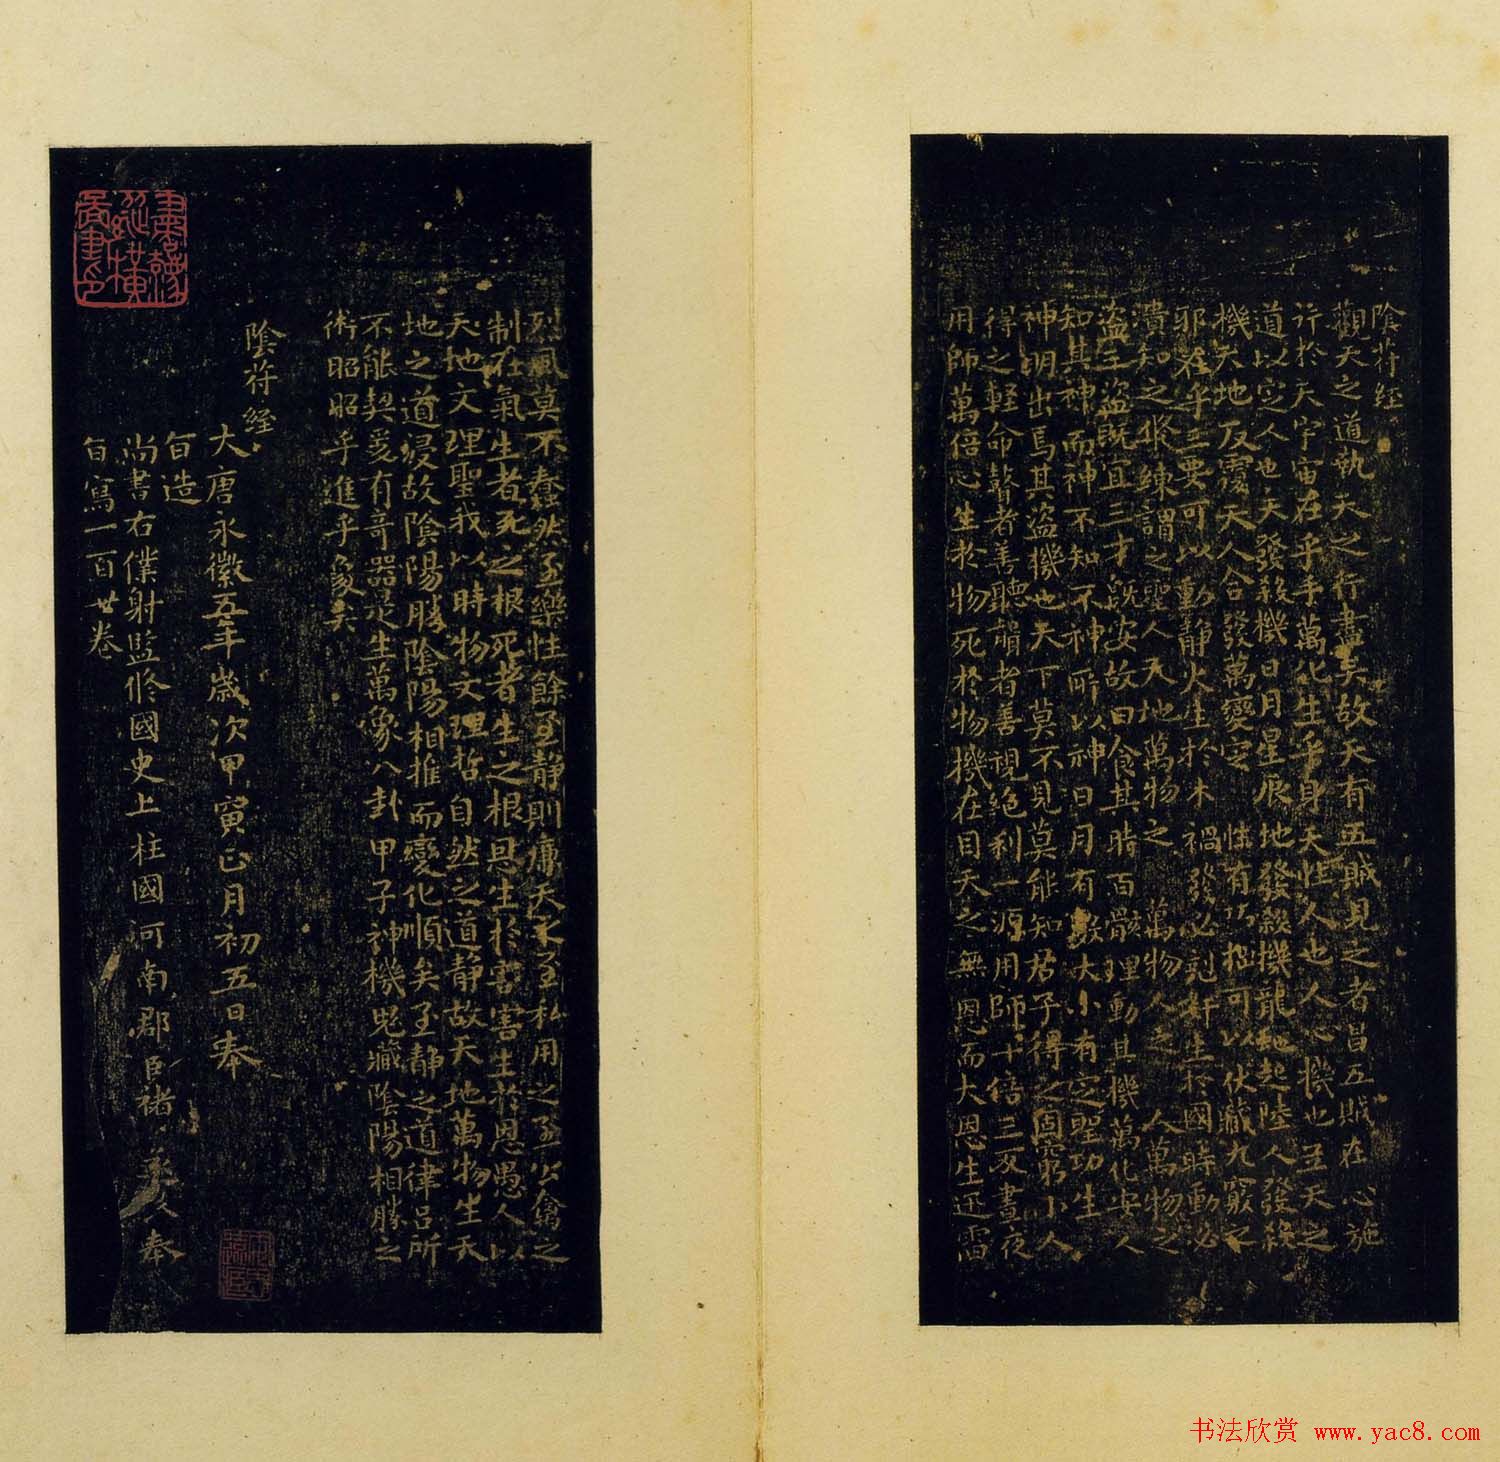 陰符經
觀天之道執天之行盡矣故天有五賊見之者昌五賊在心施
行於天宇宙在乎手萬化生乎身天性人也人心機也立天之
道以定人也天發殺機日月星辰地發殺機龍虵起陸人發殺
機天地反覆天人合發萬變定　性有巧拙可以伏藏九竅之
邪在乎三要可以動静火生於木　禍發必剋奸生於國時動必
潰知之修練謂之聖人天地萬物之　萬物人之　人萬物之
盜三盜既宜三才既安故曰食其時百骸理動其機萬化安人
知其神而神不知不神所以神日月有數大小有定聖功生
神明出焉其盜機也天下莫不見莫能知君子得之固窮小人
得之輕命瞽者善聽聾者善視絶利一源用師十倍三反晝夜
用師萬倍心生於物死於物機在目天之無恩而大恩生迅雷
烈風莫不蠢然至樂性餘至静則廉天之至私用之至公禽之
制在氣生者死之根死者生之根恩生於害害生於恩愚人以
天地文理聖我以時物文理哲自然之道静故天地萬物生天
地之道浸故陰陽勝陰陽相推而變化順矣至静之道律呂所
不能契爰有哥器是生萬像八卦甲子神機鬼藏陰陽相勝之
術昭昭乎進乎象矣
陰符經
大唐永徽五年歲次甲寅正月初五日奉
旨造
尚書右僕射監修國史上柱國河南郡臣褚遂良奉
旨寫一百廿卷
书法欣赏 www.yac8.com